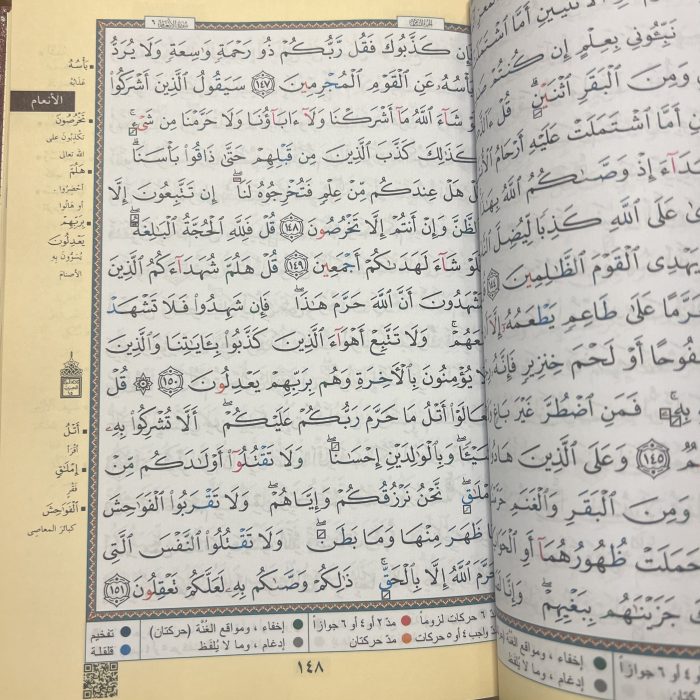 سورة الأنعام ٦
فَإِن كَذَّبُوكَ فَقُل رَّبُّكُمْ ذُو رَحْمَةٍ وَٰسِعَةٍ وَلَا يُرَدُّ
بَأْسُهُۥ عَنِ ٱلْقَوْمِ ٱلْمُجْرِمِينَ ١٤٧ سَيَقُولُ ٱلَّذِينَ أَشْرَكُوا۟
لَوْ شَآءَ ٱللَّهُ مَآ أَشْرَكْنَا وَلَآ ءَابَآؤُنَا وَلَا حَرَّمْنَا مِن شَىْءٍ ۚ
كَذَٰلِكَ كَذَّبَ ٱلَّذِينَ مِن قَبْلِهِمْ حَتَّىٰ ذَاقُوا۟ بَأْسَنَا ۗ
قُلْ هَلْ عِندَكُم مِّنْ عِلْمٍ فَتُخْرِجُوهُ لَنَآ ۖ إِن تَتَّبِعُونَ إِلَّا
ٱلظَّنَّ وَإِنْ أَنتُمْ إِلَّا تَخْرُصُونَ ١٤٨ قُلْ فَلِلَّهِ ٱلْحُجَّةُ ٱلْبَٰلِغَةُ ۖ
فَلَوْ شَآءَ لَهَدَىٰكُمْ أَجْمَعِينَ ١٤٩ قُلْ هَلُمَّ شُهَدَآءَكُمُ ٱلَّذِينَ
يَشْهَدُونَ أَنَّ ٱللَّهَ حَرَّمَ هَٰذَا ۖ فَإِن شَهِدُوا۟ فَلَا تَشْهَدْ
مَعَهُمْ ۚ وَلَا تَتَّبِعْ أَهْوَآءَ ٱلَّذِينَ كَذَّبُوا۟ بِـَٔايَٰتِنَا وَٱلَّذِينَ
لَا يُؤْمِنُونَ بِٱلْءَاخِرَةِ وَهُم بِرَبِّهِمْ يَعْدِلُونَ ١٥٠ ۞ قُلْ
تَعَالَوْا۟ أَتْلُ مَا حَرَّمَ رَبُّكُمْ عَلَيْكُمْ ۖ أَلَّا تُشْرِكُوا۟ بِهِۦ
شَيْـًٔا ۖ وَبِٱلْوَٰلِدَيْنِ إِحْسَٰنًا ۖ وَلَا تَقْتُلُوٓا۟ أَوْلَٰدَكُم مِّنْ
إِمْلَٰقٍ ۖ نَّحْنُ نَرْزُقُكُمْ وَإِيَّاهُمْ ۖ وَلَا تَقْرَبُوا۟ ٱلْفَوَٰحِشَ
مَا ظَهَرَ مِنْهَا وَمَا بَطَنَ ۖ وَلَا تَقْتُلُوا۟ ٱلنَّفْسَ ٱلَّتِى
حَرَّمَ ٱللَّهُ إِلَّا بِٱلْحَقِّ ۚ ذَٰلِكُمْ وَصَّىٰكُم بِهِۦ لَعَلَّكُمْ تَعْقِلُونَ ١٥١
بَأْسُهُ
عَذَابُهُ
الأنعام
تَخْرُصُونَ
تَكْذِبُونَ على
الله تعالى
هَلُمَّ
أحْضِرُوا،
أو هَاتُوا
بِرَبِّهِمْ
يَعْدِلُونَ
يُسَوُّونَ بِهِ
الأصنامَ
أَتْلُ
أقْرَأ
إِمْلَاقٍ
فَقْرٍ
الْفَوَاحِشَ
كبائرَ المعاصي
٦ حركات لزوماً مدّ ٢ أو ٤ أو ٦ جوازاً إخفاء ، ومواقع الغُنَّة (حركتان) تفخيم
مدّ واجب ٤ أو ٥ حركات مدّ حركتان إدغام ، وما لا يُلفَظ قلقلة
١٤٨
نَبِّـُٔونِى بِعِلْمٍ إِن كُنتُمْ
وَمِنَ ٱلْبَقَرِ ٱثْنَيْنِ ۗ قُلْ
أَمَّا ٱشْتَمَلَتْ عَلَيْهِ أَرْحَامُ
إِذْ وَصَّىٰكُمُ ٱللَّهُ
عَلَى ٱللَّهِ كَذِبًا لِّيُضِلَّ
يَهْدِى ٱلْقَوْمَ ٱلظَّٰلِمِينَ ١٤٤
عَلَىٰ طَاعِمٍ يَطْعَمُهُۥٓ إِلَّآ
أَوْ لَحْمَ خِنزِيرٍ فَإِنَّهُۥ
بِهِۦ ۚ فَمَنِ ٱضْطُرَّ غَيْرَ بَاغٍ
١٤٥ وَعَلَى ٱلَّذِينَ
وَمِنَ ٱلْبَقَرِ وَٱلْغَنَمِ
حَمَلَتْ ظُهُورُهُمَآ أَوِ
جَزَيْنَٰهُم بِبَغْيِهِمْ ۖ
إخفاء ، ومواقع الغُنَّة
إدغام ، وما لا يُلفَظ